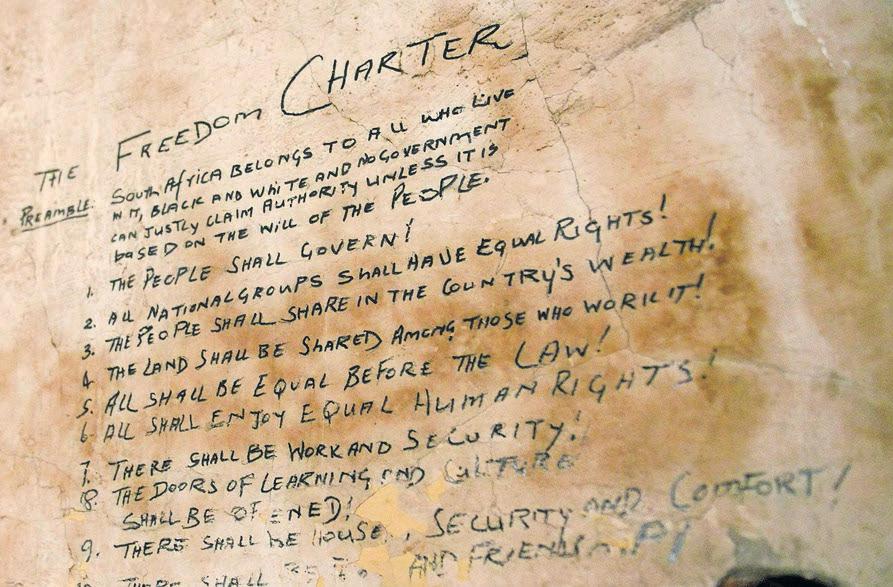 THE FREEDOM CHARTER
PREAMBLE. SOUTH AFRICA BELONGS TO ALL WHO LIVE
IN IT, BLACK AND WHITE AND NO GOVERNMENT
CAN JUSTLY CLAIM AUTHORITY UNLESS IT IS
bASED ON THE WILL OF THE PEOPLE.
1. THE PEOPLE SHALL GOVERN!
2. All NATIONAL GROUPS SHALL HAVE EQUAL RIGHTS!
3. THE PEOPLE SHALL SHARE IN THE COUNTRY'S WEALTH!
4. THE LAND SHALL BE SHARED AMONG THOSE WHO WORK IT!
5. ALL SHALL BE EQUAL BEFORE THE LAW!
6. ALL SHALL ENJOY EQUAL HUMAN RIGHTS!
7. THERE SHALL BE WORK AND SECURITY!
8. THE DOORS OF LEARNING AND CULTURE
SHALL BE OPENED!
9. THERE SHALL BE HOUSE, SECURITY AND COMFORT!
THERE SHALL BE AND